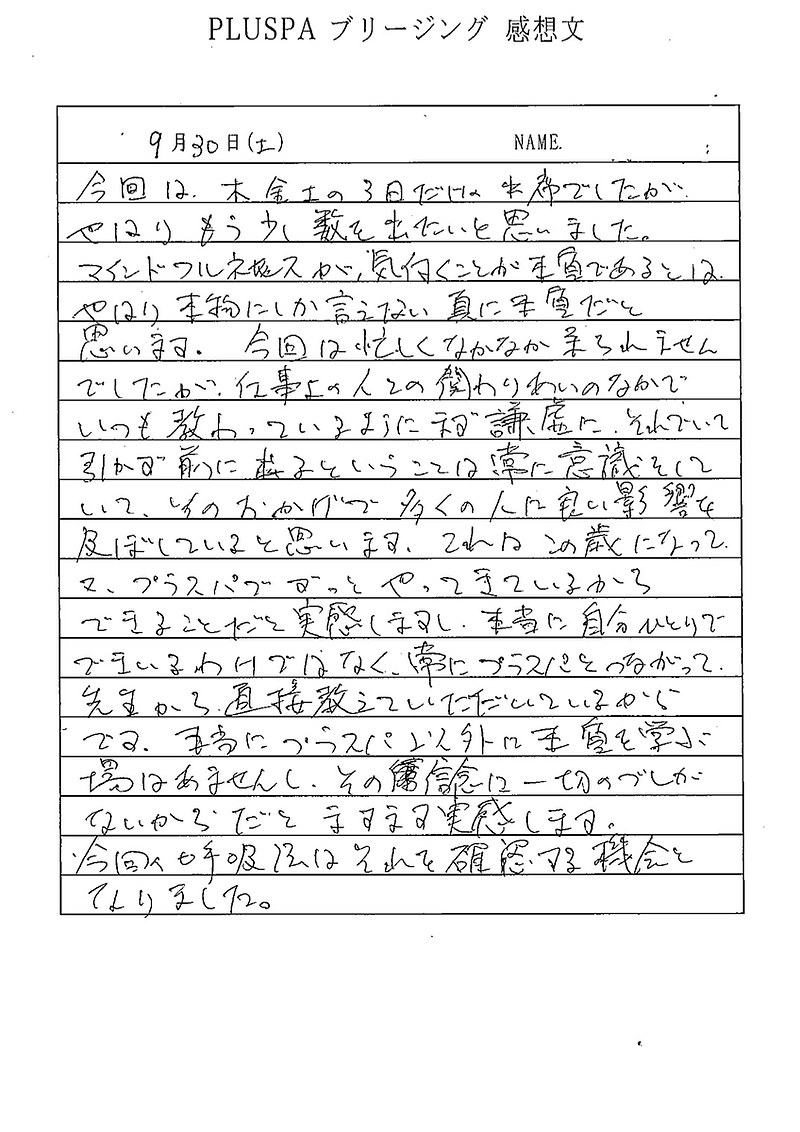 PLUSPA ブリージング 感想文
9月30日(土) NAME.
今回は、木金土の3日だけの出席でしたが、
やはりもう少し数を出たいと思いました。
マインドフルネスが、気付くことが本質であるとは、
やはり本物にしか言えない真に本質だと
思います。 今回は忙しくなかなか来られません
でしたが、仕事上の人との関わりあいのなかで
いつも教わっているようにまず謙虚に、それでいて
引かず前に出るということは常に意識をして
いて、そのおかげで多くの人に良い影響を
及ぼしていると思います。これはこの歳になって、
又、プラスパでずっとやってきているから
できることだと実感しますし、本当に自分ひとりで
できているわけではなく、常にプラスパとつながって、
先生から直接教えていただいているから
です。本当にプラスパ以外に本質を学ぶ
場はありませんし、その信念に一切のブレが
ないからだとますます実感します。
今回の呼吸法はそれを確認する機会と
なりました。